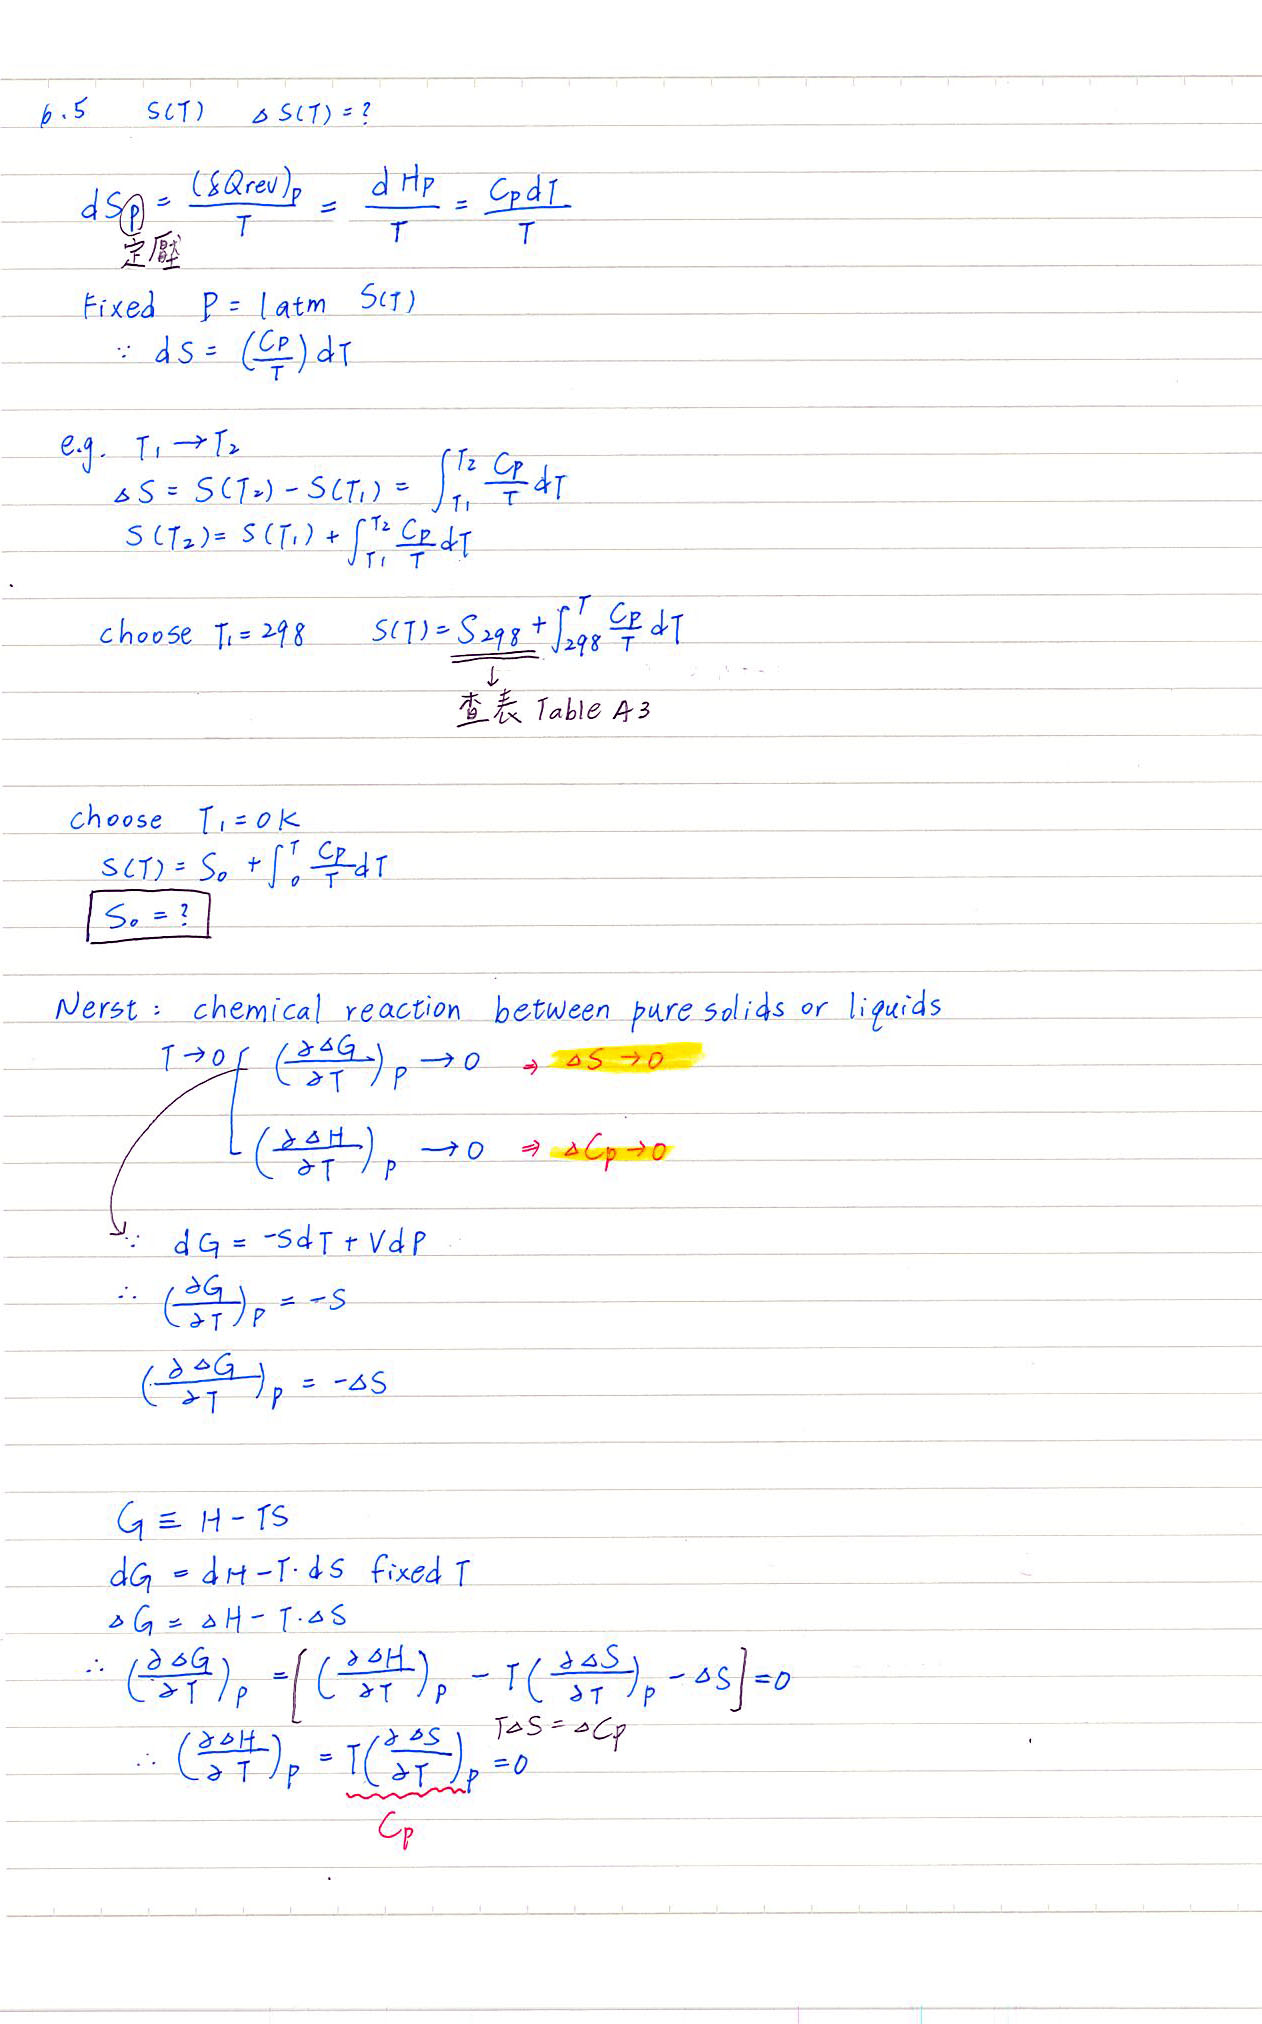 6.5 S(T) ΔS(T)=?
dS_P = (δQrev)_P / T = dH_P / T = C_P dT / T
定壓
Fixed P = 1atm S(T)
∵ dS = (C_P/T) dT
e.g. T₁ → T₂
ΔS = S(T₂) - S(T₁) = ∫_{T₁}^{T₂} C_P/T dT
S(T₂) = S(T₁) + ∫_{T₁}^{T₂} C_P/T dT
choose T₁ = 298 S(T) = S₂₉₈ + ∫_{298}^{T} C_P/T dT
↓
查表 Table A3
choose T₁ = 0K
S(T) = S₀ + ∫_0^T C_P/T dT
S₀ = ?
Nerst : chemical reaction between pure solids or liquids
T→0 (∂ΔG/∂T)_P → 0 ⇒ ΔS → 0
(∂ΔH/∂T)_P → 0 ⇒ ΔC_P → 0
∵ dG = -SdT + VdP
∴ (∂G/∂T)_P = -S
(∂ΔG/∂T)_P = -ΔS
G ≡ H - TS
dG = dH - T·dS fixed T
ΔG = ΔH - T·ΔS
∴ (∂ΔG/∂T)_P = [(∂ΔH/∂T)_P - T(∂ΔS/∂T)_P - ΔS] = 0
TΔS = ΔC_P
∴ (∂ΔH/∂T)_P = T(∂ΔS/∂T)_P = 0
C_P